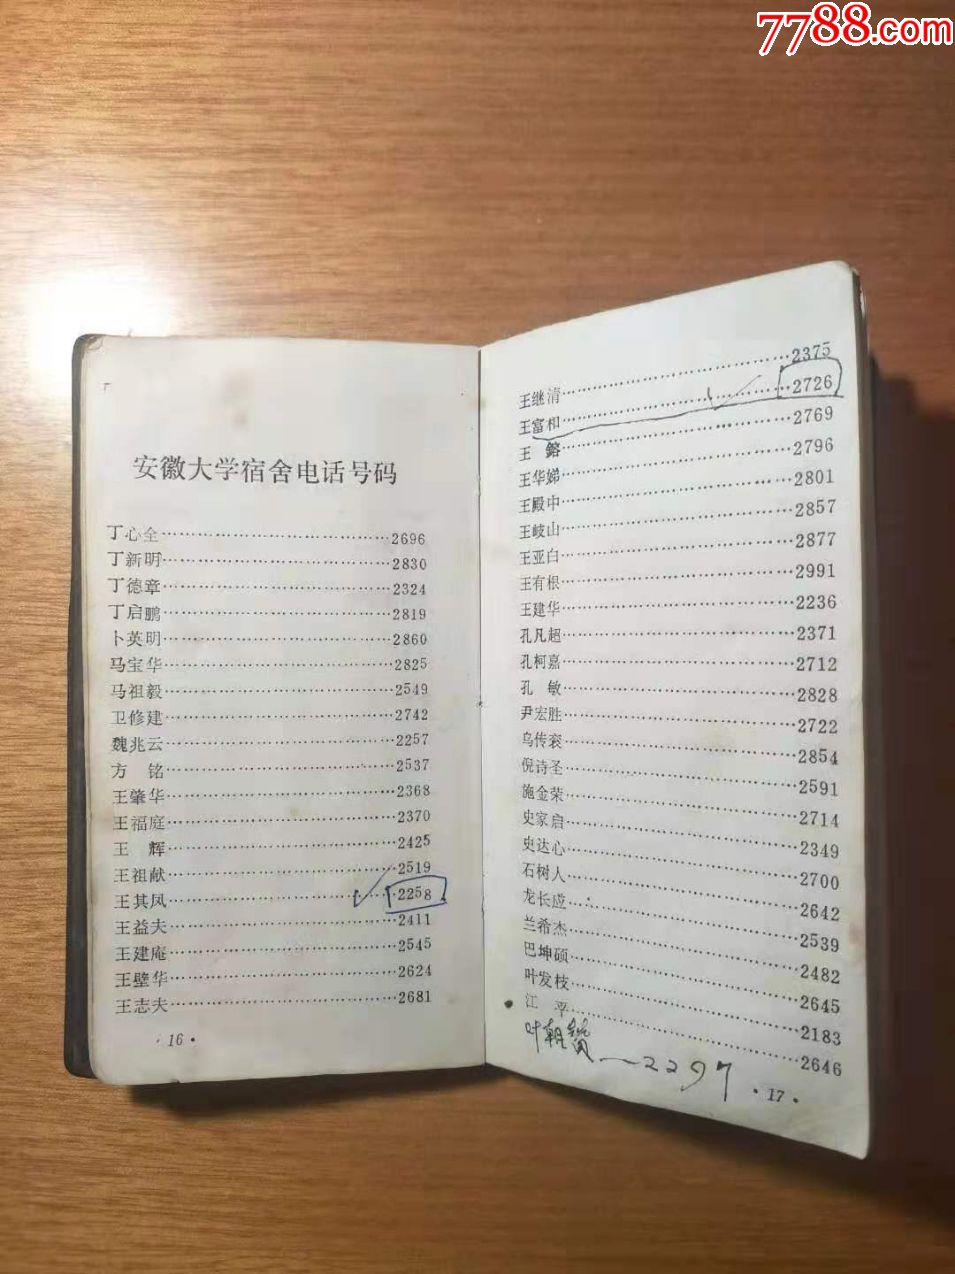 7788.com
安徽大学宿舍电话号码
丁心全……………………………2696
丁新明……………………………2830
丁德章……………………………2324
丁启鹏……………………………2819
卜英明……………………………2860
马宝华……………………………2825
马祖毅……………………………2549
卫修建……………………………2742
魏兆云……………………………2257
方 铭……………………………2537
王肇华……………………………2368
王福庭……………………………2370
王 辉……………………………2425
王祖献……………………………2519
王其凤……………………………2258
王益夫……………………………2411
王建庵……………………………2545
王壁华……………………………2624
王志夫……………………………2681
·16·
王继清……………………………2375
王富相……………………………2726
王 鎔……………………………2769
王华娣……………………………2796
王殿中……………………………2801
王岐山……………………………2857
王亚白……………………………2877
王有根……………………………2991
王建华……………………………2236
孔凡超……………………………2371
孔柯嘉……………………………2712
孔 敏……………………………2828
尹宏胜……………………………2722
乌传衮……………………………2854
倪诗圣……………………………2591
施金荣……………………………2714
史家启……………………………2349
史达心……………………………2700
石树人……………………………2642
龙长应……………………………2539
兰希杰……………………………2482
巴坤硕……………………………2645
叶发枝……………………………2183
江 平……………………………2646
叶朝赞—2297
·17·